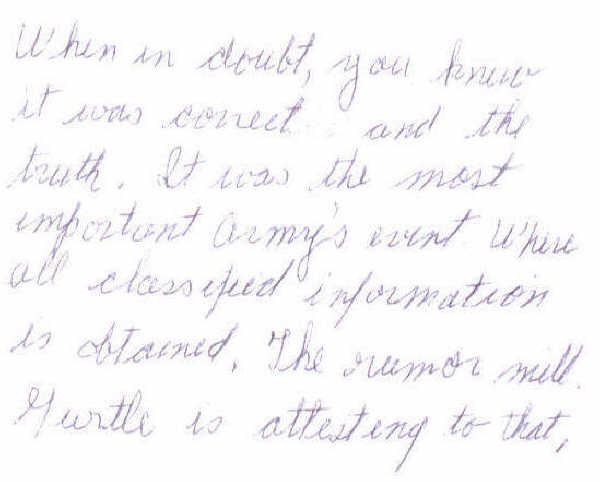 When in doubt, you knew
it was correct and the
truth. It was the most
important Army's event. Where
all classified information
is obtained. The rumor mill.
Gurtle is attesting to that,